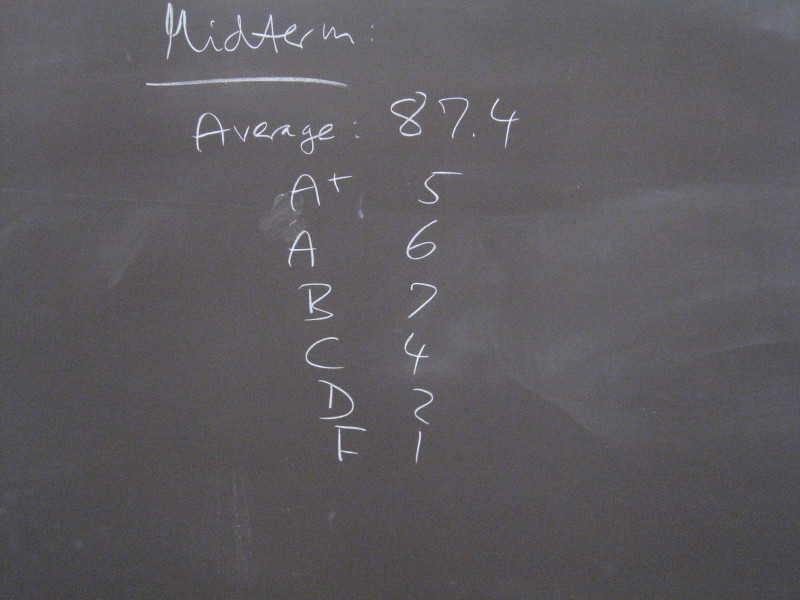 Midterm:
Average: 87.4
A+ 5
A 6
B 7
C 4
D 2
F 1